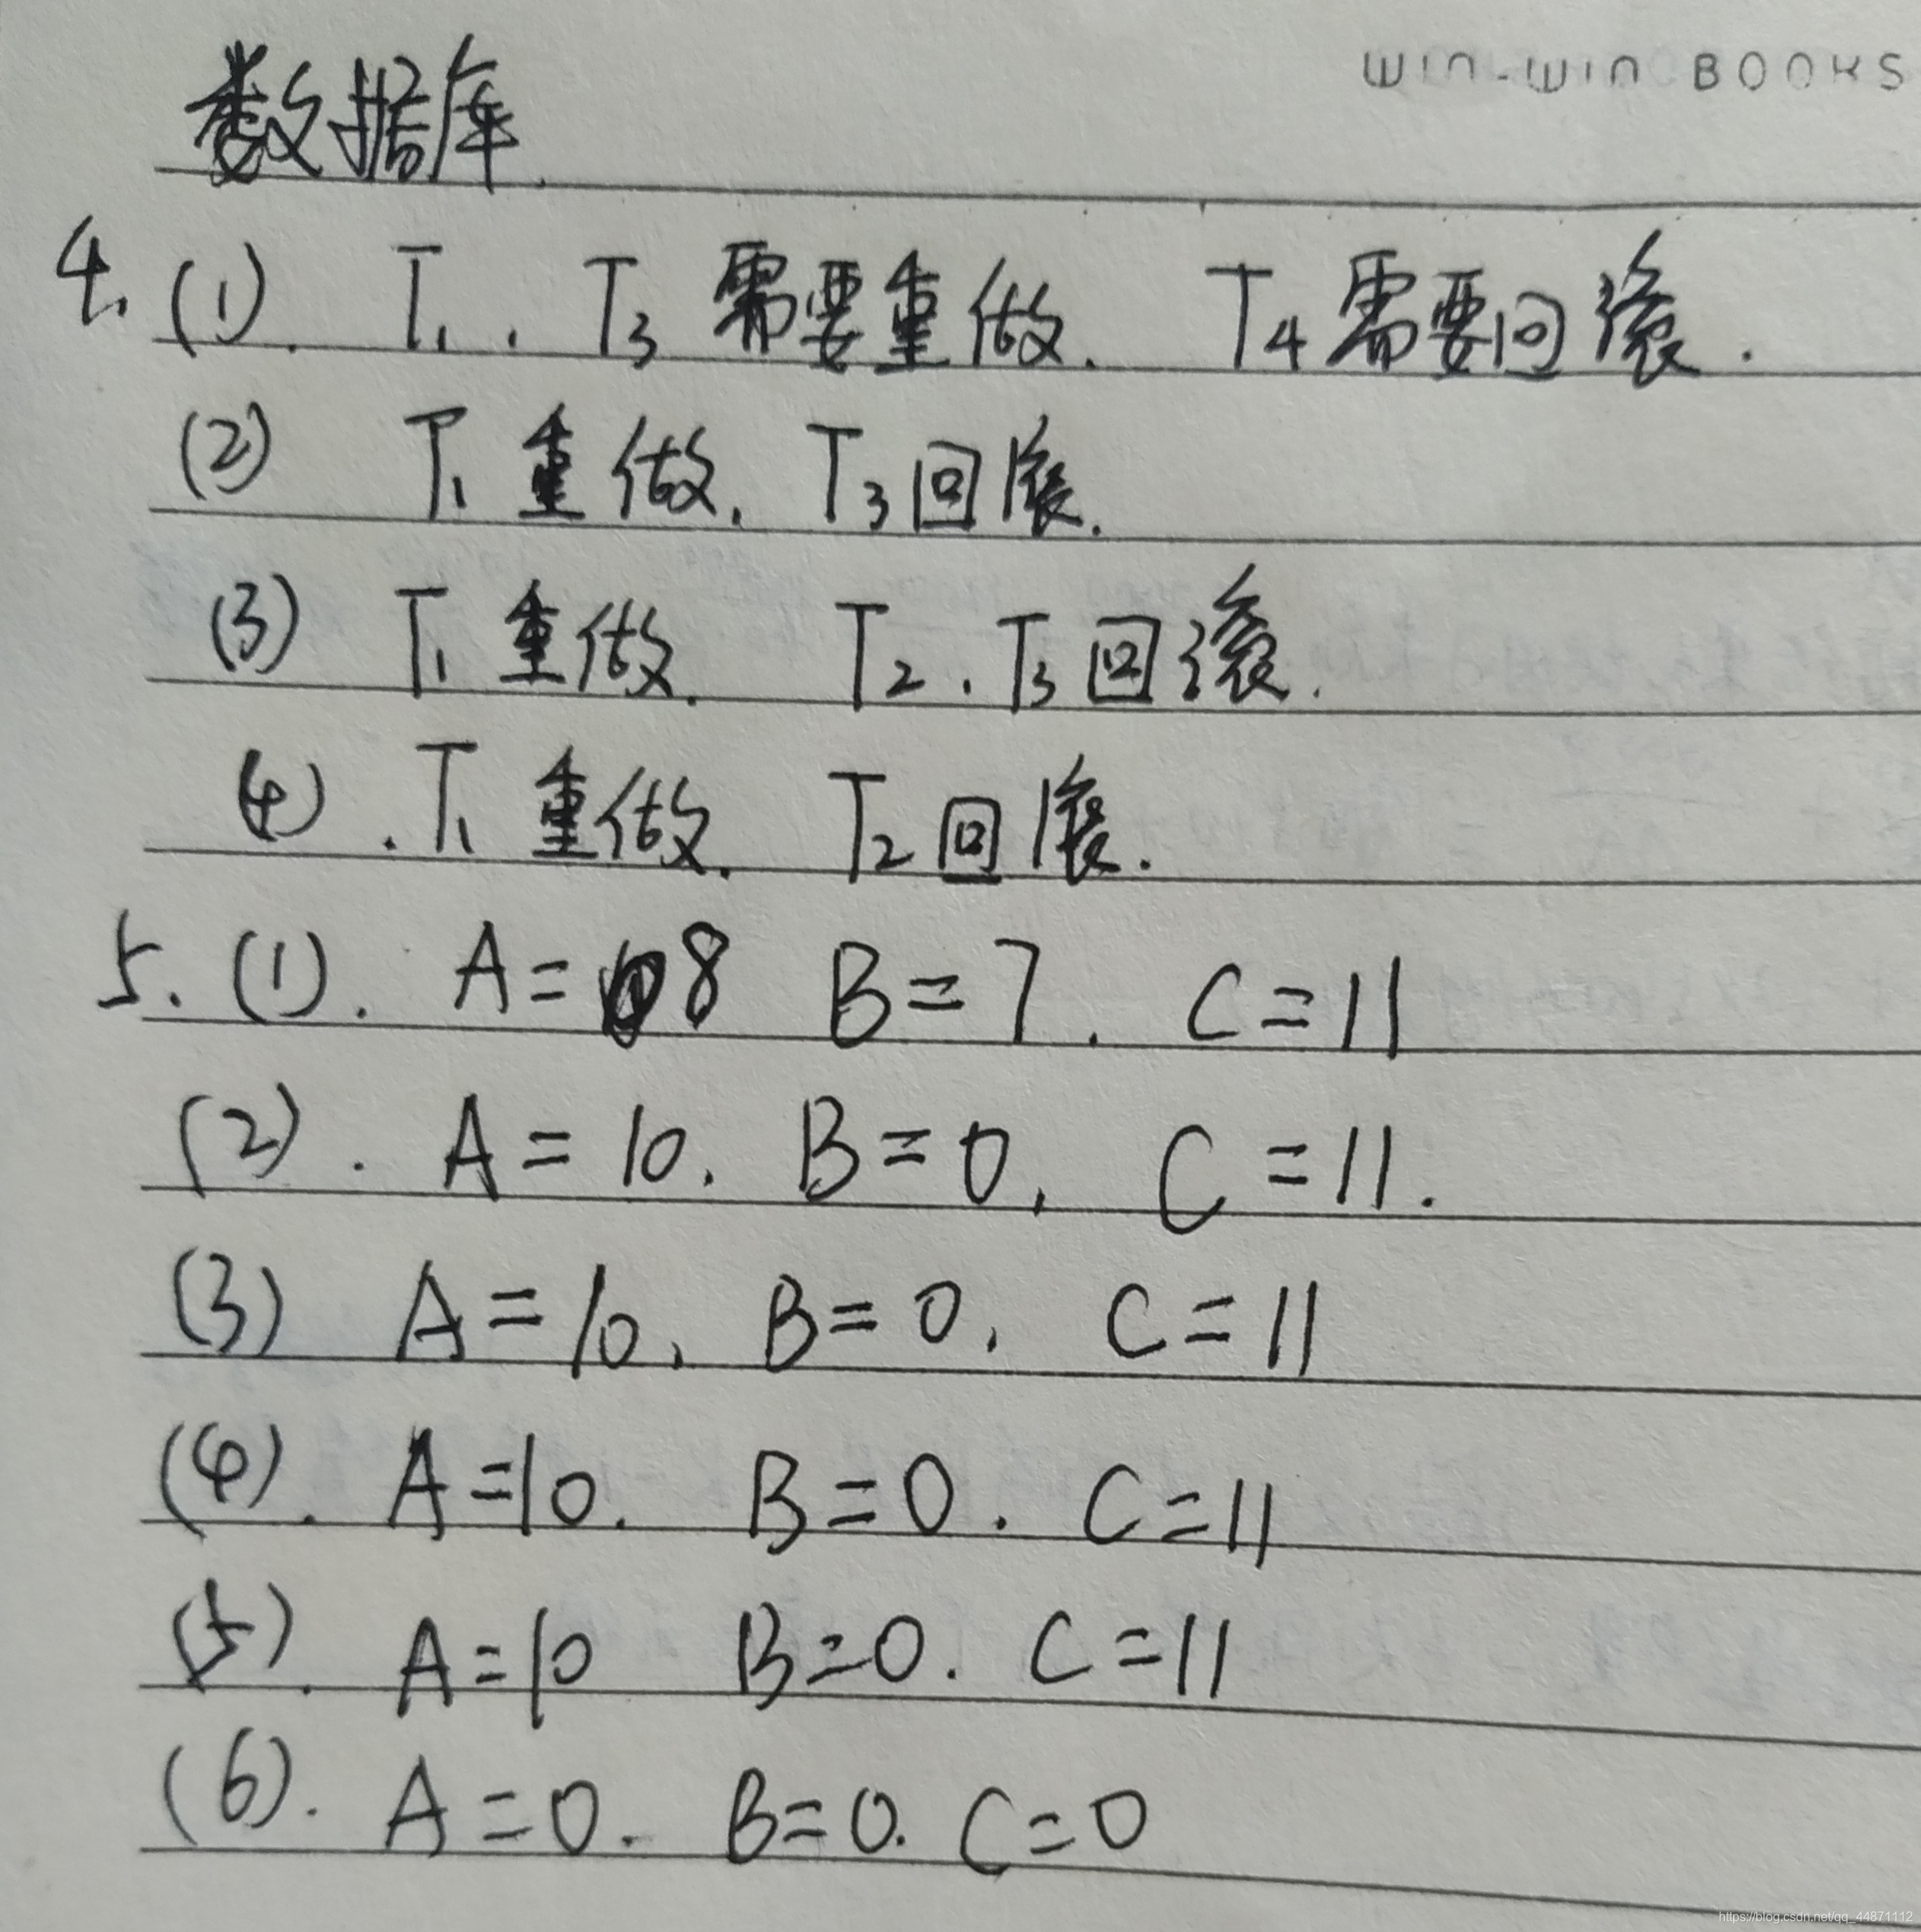 WIN-WIN BOOKS
数据库
4. (1). T1、T3 需要重做. T4 需要回滚.
(2) T1 重做, T3 回滚.
(3) T1 重做. T2、T3 回滚.
(4). T1 重做. T2 回滚.
5. (1). A=8 B=7. C=11
(2). A=10. B=0, C=11.
(3) A=10, B=0, C=11
(4). A=10. B=0. C=11
(5). A=10 B=0. C=11
(6). A=0. B=0. C=0
https://blog.csdn.net/qq_44871112